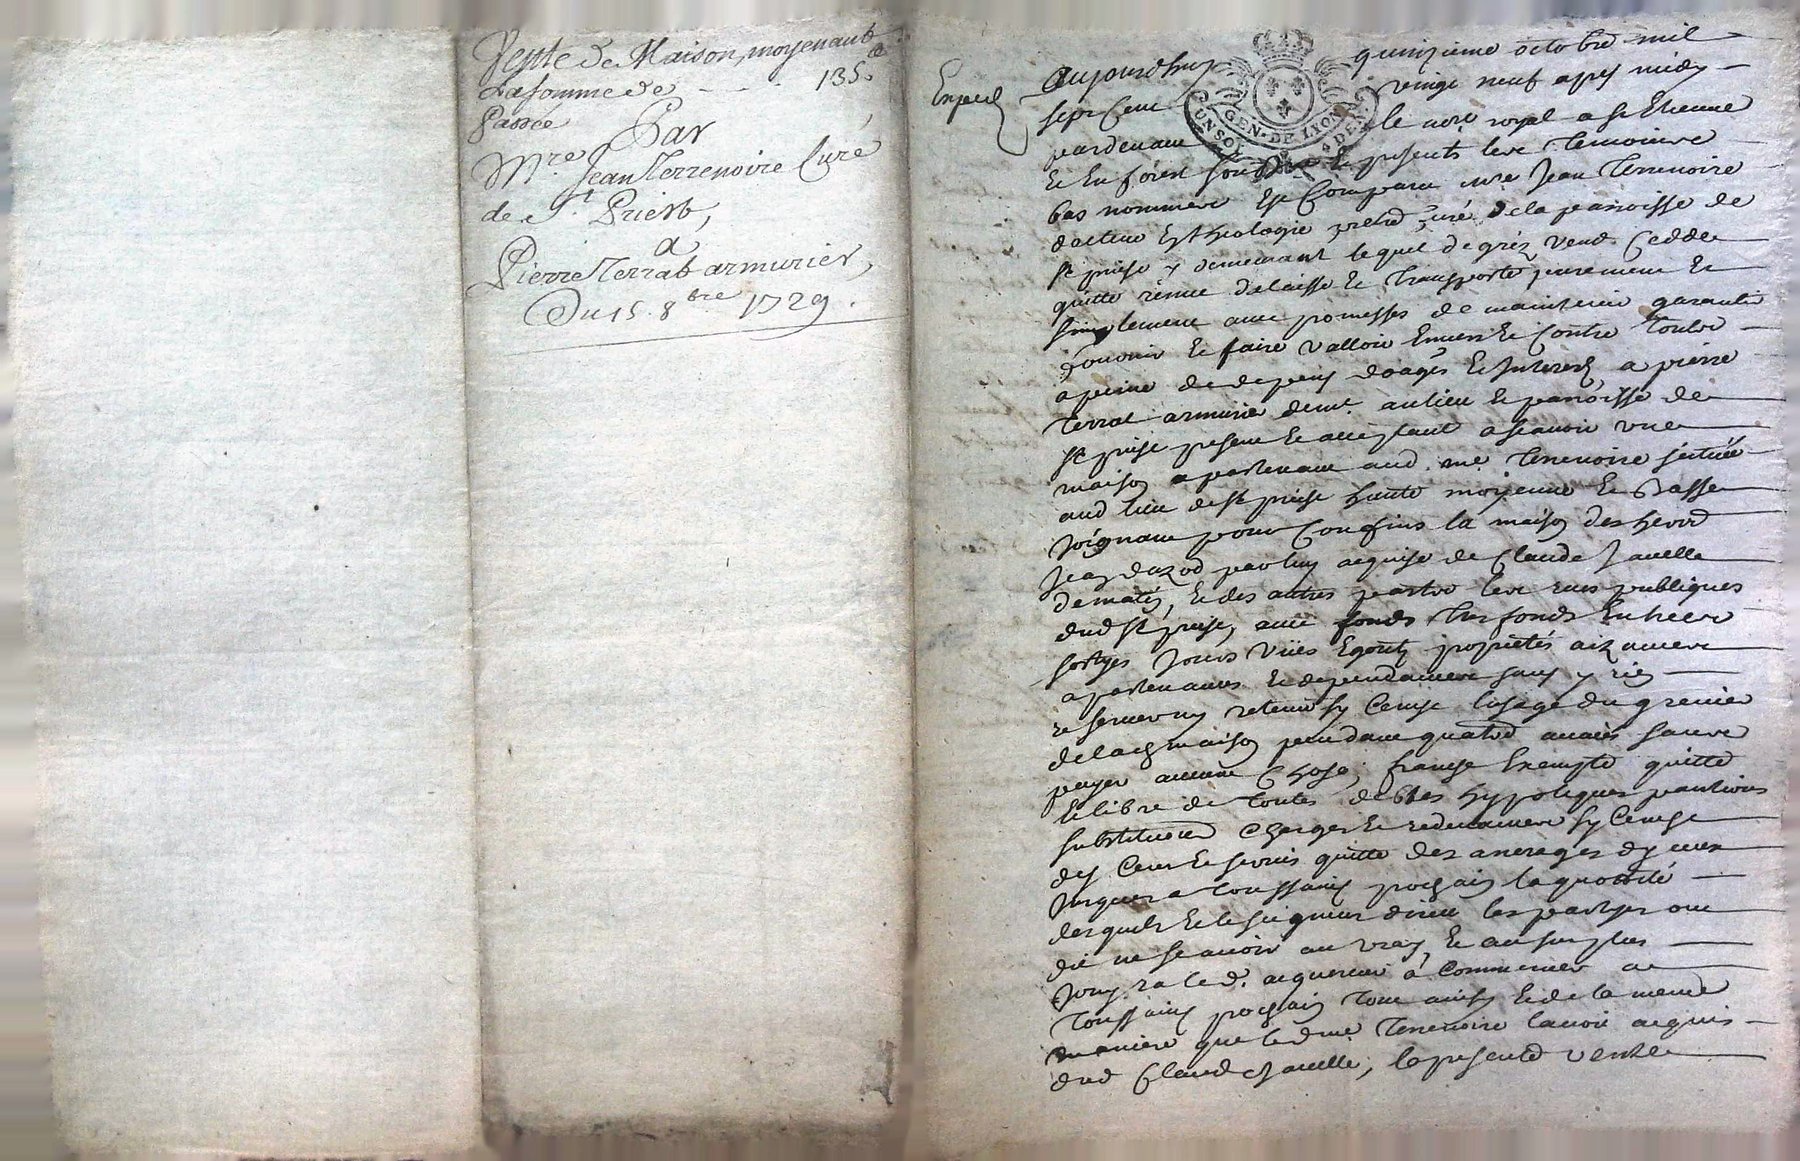 Vente de Maison, moyenant
La somme de - - - 135
Passée
Par
Mre. Jean Terrenoire Curé
de St. Priest,
a
Pierre Terrat armurier,
Du 15. 8bre 1729.
Exped
aujourdhuy quinzieme octobre mil
sept Cent vingt neuf apres midy
pardevant le nore royal a st Etienne
GEN. DE LYON
Et En forest soussigné presents les temoins
bas nommes Est Comparu mre Jean Terrenoire
docteur En theologie pretre curé de la parroisse de
st priest y demeurant lequel de gré vend Cedde
quitte remet delaisse Et transporte purement Et
simplement avec promesses de maintenir garantir
Et faire valloir Envers Et Contre toutes
a peine de depens Et Interests, a pierre
Terrat armurier demt. au lieu Et parroisse de
st priest present Et acceptant a scavoir une
maison apartenant aud. mre Terrenoire scituée
aud lieu de st priest haute moyenne Et Basse
Joignant pour Confins la maison des
par luy acquise de Claude Javelle
Et des autres parts les rues publiques
dud st priest, avec fonds tres fonds Entrées
sorties Jours Vües Egouts proprietés aizances
apartenances Et dependances sans y rien
reserver ny retenir sy Ce n'est lusage du grenier
de lad maison pendant quatre années sans
payer aucune Chose; franche Exempte quitte
Et libre de toutes debtes hypoteques pantions
substitutions Charges Et redevances sy Ce n'est
des Cens Et servis quitte des arrerages dyceux
Jusques a toussaints prochain la quottité
desquels Et le seigneur direct les partyes ont
dit ne scavoir au vray, Et au surplus
Jouyra led. acquereur à Commencer a
toussaints prochain tout ainsy Et de la meme
maniere que led mre Terrenoire lavoit acquis
dud Claude Javelle, la presente vente